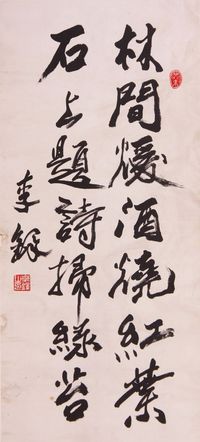 林間煖酒燒紅葉
石上題詩掃綠苔
李鐸